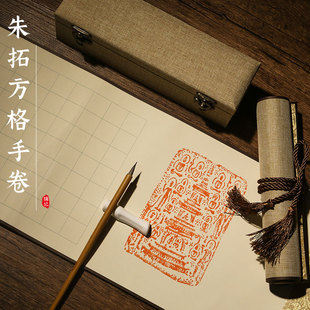 朱拓方格手卷